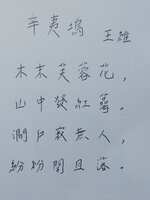 辛夷塢
王維
木末芙蓉花，
山中發紅萼。
澗戶寂無人，
紛紛開且落。